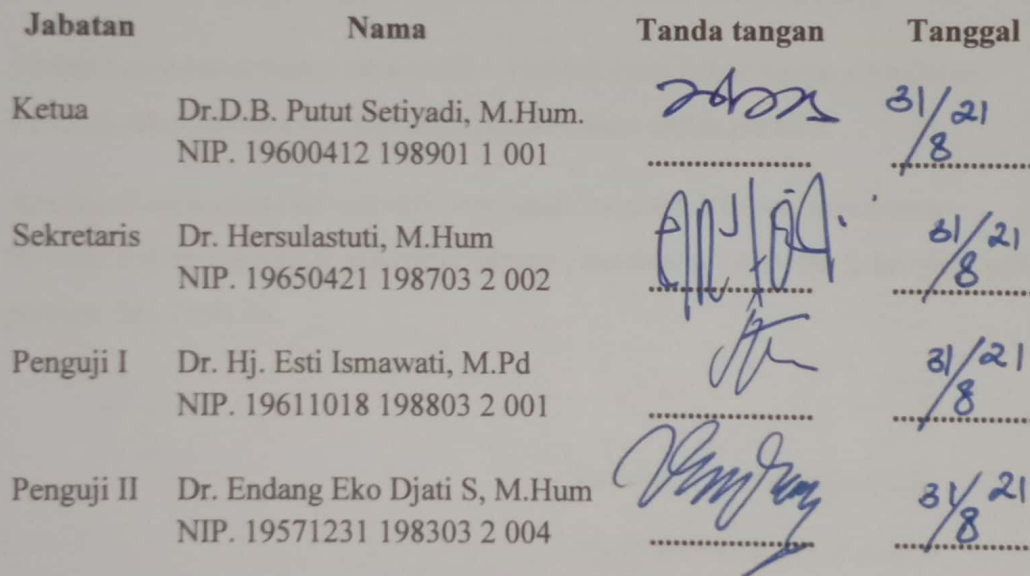 Jabatan Nama Tanda tangan Tanggal
Ketua Dr.D.B. Putut Setiyadi, M.Hum. 31/8 21
NIP. 19600412 198901 1 001 ..................
Sekretaris Dr. Hersulastuti, M.Hum 31/8 21
NIP. 19650421 198703 2 002 ..................
Penguji I Dr. Hj. Esti Ismawati, M.Pd 31/8 21
NIP. 19611018 198803 2 001 ..................
Penguji II Dr. Endang Eko Djati S, M.Hum 31/8 21
NIP. 19571231 198303 2 004 ..................